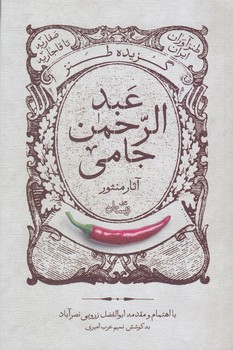 طنزآوران
ایران
صفاریه
تا قاجاریه
گزیده طنز
عبد
الرحمن
جامی
آثار منثور
با اهتمام و مقدمه ابوالفضل زرویی نصرآباد
به کوشش نسیم عرب امیری